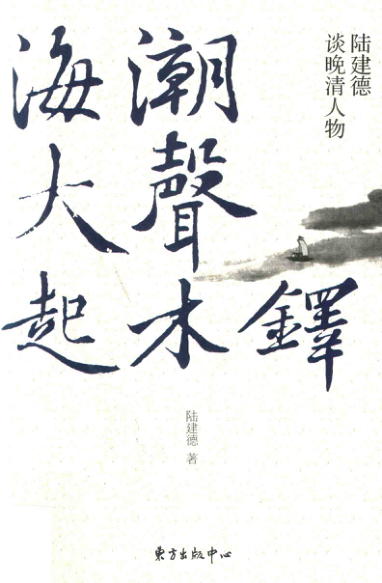 海潮
大聲
起木鐸
陆建德
谈晚清人物
陆建德 著
東方出版中心